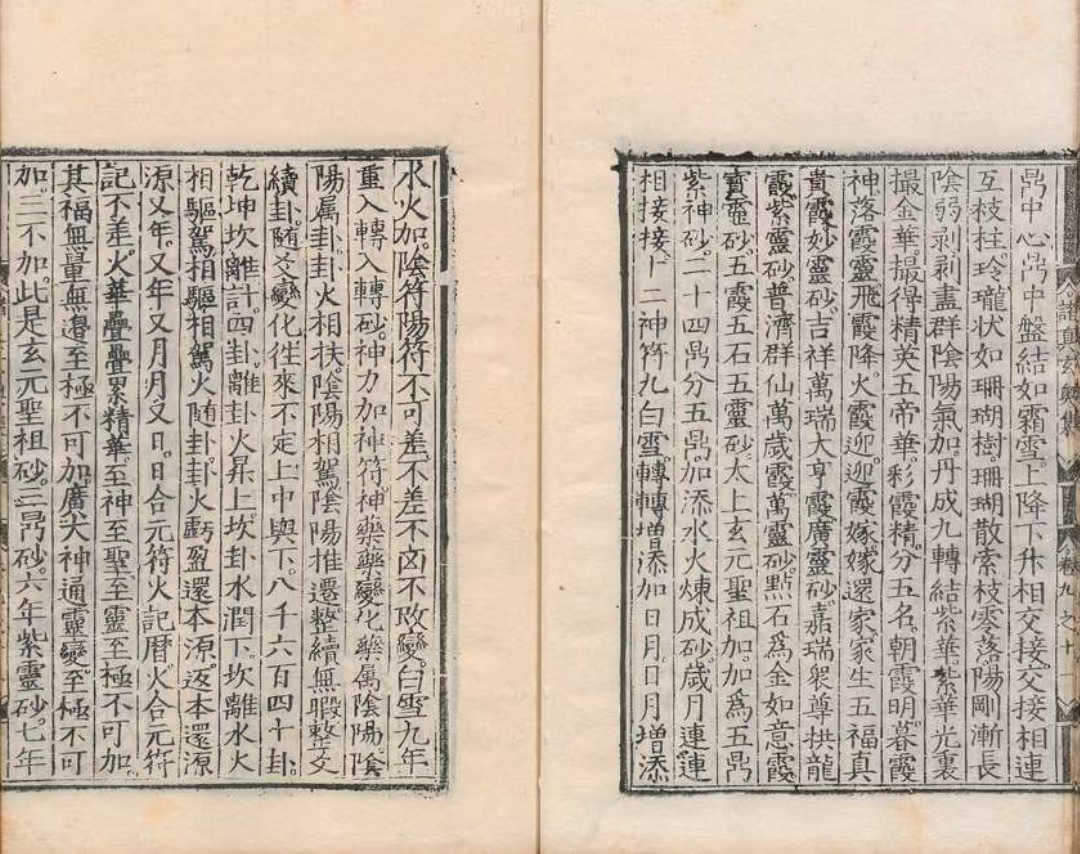 鼎中心鼎中盤結如霜雪。上降下升相交接。交接相連
互枝柱。玲瓏狀如珊瑚樹。珊瑚散索枝零落。陽剛漸長
陰弱剥。剥盡群陰陽氣加。丹成九轉結紫華。紫華光裏
撮金華。撮得精英五帝華。彩霞精。分五名。朝霞明。暮霞
神。落霞靈。飛霞降。火霞迎。迎霞嫁。嫁還家。家生五福真
貴霞妙靈砂。吉祥萬瑞大亨霞廣靈砂。嘉瑞衆尊拱龍
霞紫靈砂。普濟群仙萬歲霞萬靈砂。點石爲金如意霞
寳靈砂。五霞五石五靈砂。太上玄元聖祖加。加爲五鼎
紫神砂。二十四鼎分五鼎。加添水火煉成砂。歳月連連
相接接。十二神符九白雪。轉轉增添加日月。日月增添
水火加。陰符陽符不可差。不差不凶不改變。白雪九年
重入轉。入轉砂。神力加。神符神藥藥變化。藥属陰陽。陰
陽属卦。卦火相扶。陰陽相駕。陰陽推遷。整續無暇。整交
續卦。随爻變化。徃來不定上中與下。八千六百四十卦。
乾坤坎離計。四卦。離卦火昇上。坎卦水潤下。坎離水火
相驅駕。相驅相駕火随卦。卦火虧盈還本源。返本還源
源又年。又年又月月又日。日合元符火記暦。火合元符
記不差。火華疊疊累精華。至神至聖至靈至極不可加。
其福無量無邉至極不可加。廣大神通靈變至極不可
加。三不加。此是玄元聖祖砂。三鼎砂。六年紫靈砂。七年
卷九之十一